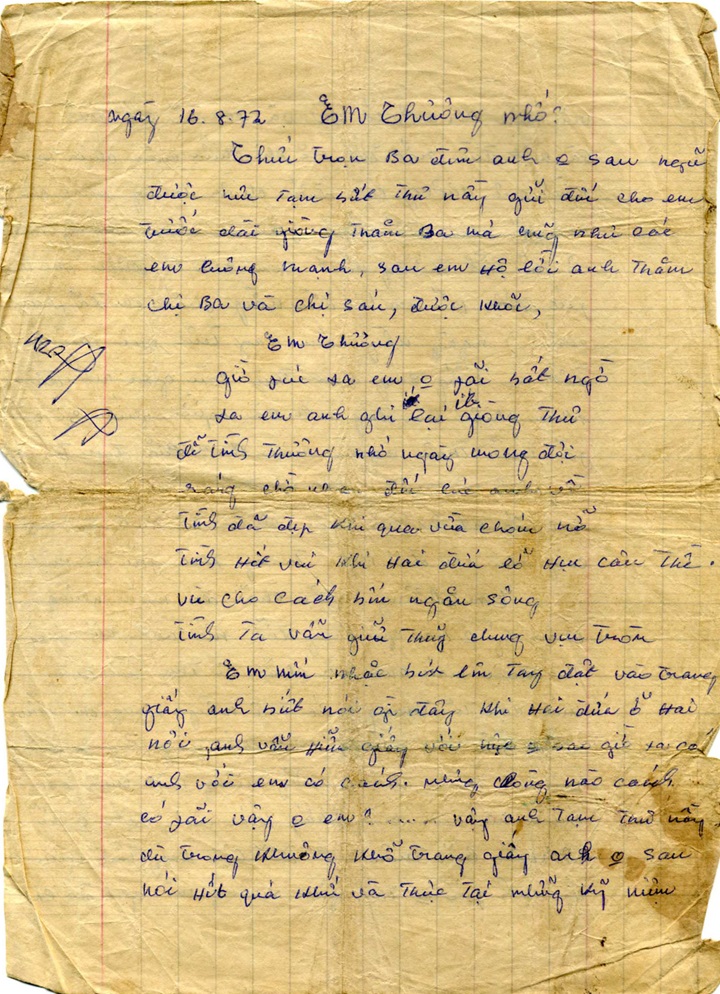 ngày 16.8.72 Em Thương nhớ?
Thức trọn Ba đêm anh o sao ngũ
được nên Tạm bút Thư nầy gửi đến cho em
trước dài giòng Thăm Ba má cũng như các
em luông mạnh, sau em Hộ lời anh Thăm
chị Ba và chị sáu, được khỏi,
Em Thương
giờ xa em o phải bất ngờ
xa em anh ghi lại ít giòng Thư
để Tình Thương nhớ ngày mong đợi
anh về
Tình đã đẹp khi qua vừa chớm nở
Tình Hết vui khi Hai đứa lỡ Hẹn câu Thề.
vì cho cách bến ngăn sông
Tình Ta vẫn giữ Thủy chung vẹn tròn
Em mến nhạc bút lên Tay đặt vào trang
giấy anh biết nói gì đây khi Hai đứa ở Hai
nơi, anh vẫn giấy với mực o sao giờ xa cá
anh với em có cách. nhưng lòng nào cách
có phải vậy o em? ..... vậy anh Tạm Thư nầy
dù trong khuông khổ trang giấy anh o sao
nói Hết quá khứ và Thực Tại những kỹ niệm